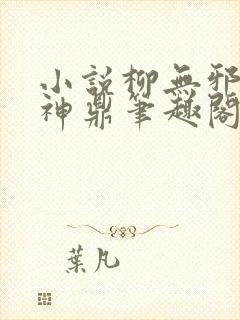 小說柳無邪
神鼎筆趣閣
葉凡